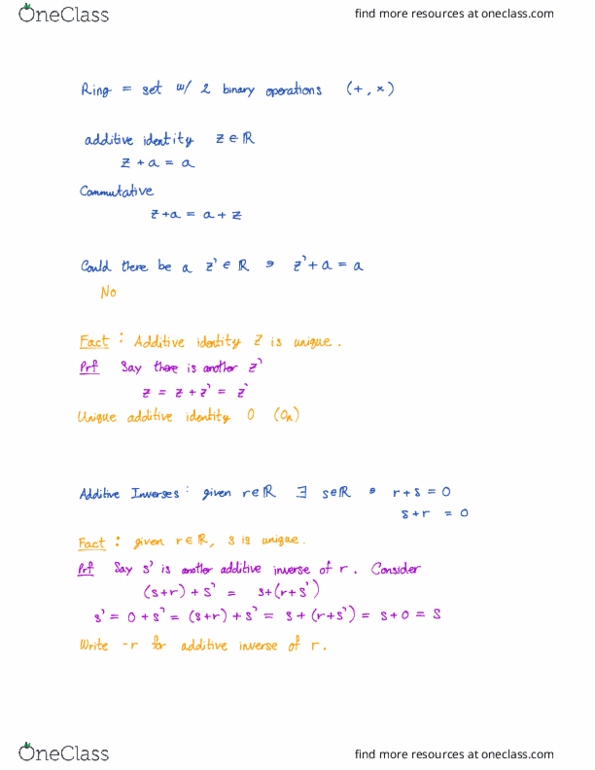 OneClass
find more resources at oneclass.com
Ring = set w/ 2 binary operations (+, ×)
additive identity z ∈ ℝ
z + a = a
Commutative
z + a = a + z
Could there be a z' ∈ ℝ ∍ z' + a = a
No
Fact : Additive identity z is unique.
Prf Say there is another z'
z = z + z' = z'
Unique additive identity 0 (0ℝ)
Additive Inverses : given r ∈ ℝ ∃ s ∈ ℝ ∍ r + s = 0
s + r = 0
Fact : given r ∈ ℝ, s is unique.
Prf Say s' is another additive inverse of r. Consider
(s + r) + s' = s + (r + s')
s' = 0 + s' = (s + r) + s' = s + (r + s') = s + 0 = s
Write -r for additive inverse of r.
OneClass
find more resources at oneclass.com